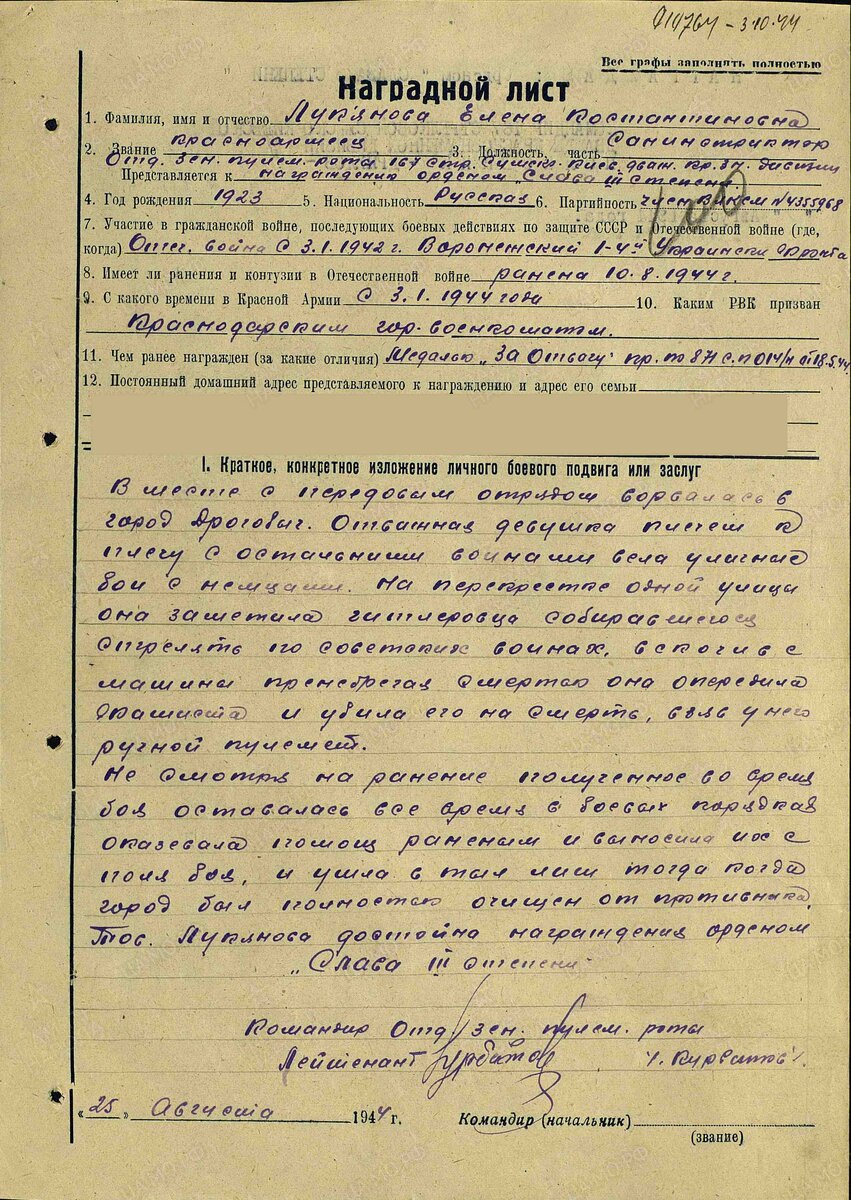 Все графы заполнять полностью
Наградной лист
1. Фамилия, имя и отчество Лукянова Елена Костантиновна
2. Звание красноармеец 3. Должность, часть Санинструктор
Отд. зен. пулем. рота 167 стр. Сумско-Киев. дваж. кр. зн. дивизии
Представляется к награждению орденом „Слава III степени
4. Год рождения 1923 5. Национальность Русская 6. Партийность член ВЛКСМ №4355968
7. Участие в гражданской войне, последующих боевых действиях по защите СССР и Отечественной войне (где,
когда) Отеч. война с 3.1.1942 г. Воронежский 1-4й Украински фронта
8. Имеет ли ранения и контузии в Отечественной войне ранена 10.8.1944 г.
9. С какого времени в Красной Армии с 3.1.1944 года 10. Каким РВК призван
Краснодарским гор. военкоматом.
11. Чем ранее награжден (за какие отличия) Медалью „За Отвагу" пр. по 871 с.п. 014/н от 18.5.44
12. Постоянный домашний адрес представляемого к награждению и адрес его семьи
I. Краткое, конкретное изложение личного боевого подвига или заслуг
В месте с передовым отрядом ворвалась в
город Дрогобыч. Отважная девушка плечем к
плечу с остальними воинами вела уличные
бои с немцами. На перекрестке одной улици
она заметила гитлеровца собиравшегося
стрелять по советских воинах, вскочив с
машины пренебрегая смертью она опередила
фашиста и убила его на смерть, взяв у него
ручной пулемет.
Не смотря на ранение полученное во время
боя оставалась все время в боевых порядках
оказевала помощ раненым и выносила их с
поля боя, и ушла в тыл лиш тогда когда
город был полностью очищен от противника.
Тов. Лукянова достойна награждения орденом
„Слава III степени"
Командир Отд. зен. пулем. рота
Лейтенант Курбатов /. Курбатов /.
„25„ Августа 1944 г.
Командир (начальник)
(звание)